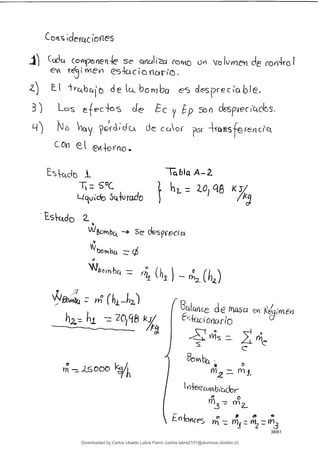 Consideraciones
1) Cada componente se analiza como un volumen de control
en régimen estacionario.
2) El trabajo de la bomba es despreciable.
3) Los efectos de Ec y Ep son despreciados.
4) No hay perdida de calor por transferencia
con el entorno.
Estado 1.
T1 = 5°C
Liquido Saturado
Tabla A-2
h1 = 20,98 KJ/kg
Estado 2.
WBomba → Se desprecia
Wbomba = ϕ
Wbomba = m1 (h1) - m2 (h2)
WBomba = m (h1-h2)
h2 = h1 = 20,98 KJ/kg
m = 15000 kg/h
Balance de masa en Régimen
Estacionario
Σ ms = Σ me
S e
Bomba.
m2 = m1.
Intercambiador
m3 = m2
Entonces m = m1 = m2 = m3
38/61
Downloaded by Carlos Ubaldo Labra Fierro (carlos.labra2101@alumnos.ubiobio.cl)